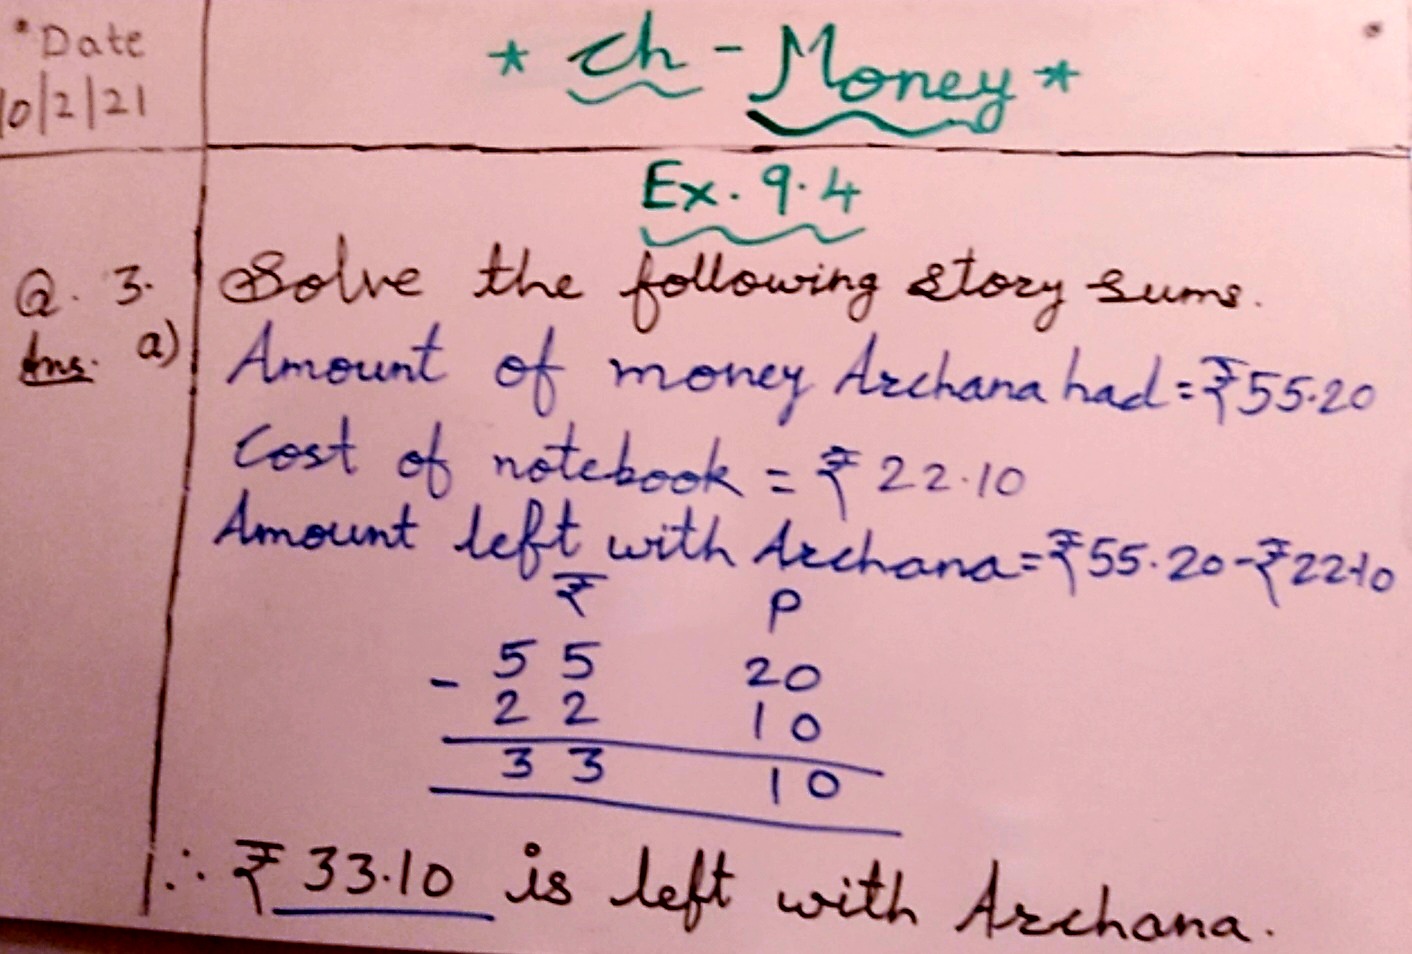 Date
10/2/21
* Ch - Money *
Ex. 9.4
Q. 3. Solve the following story sums.
Ans. a) Amount of money Archana had = ₹55.20
Cost of notebook = ₹ 22.10
Amount left with Archana = ₹55.20 - ₹22.10
₹ P
55 20
- 22 10
33 10
∴ ₹ 33.10 is left with Archana.